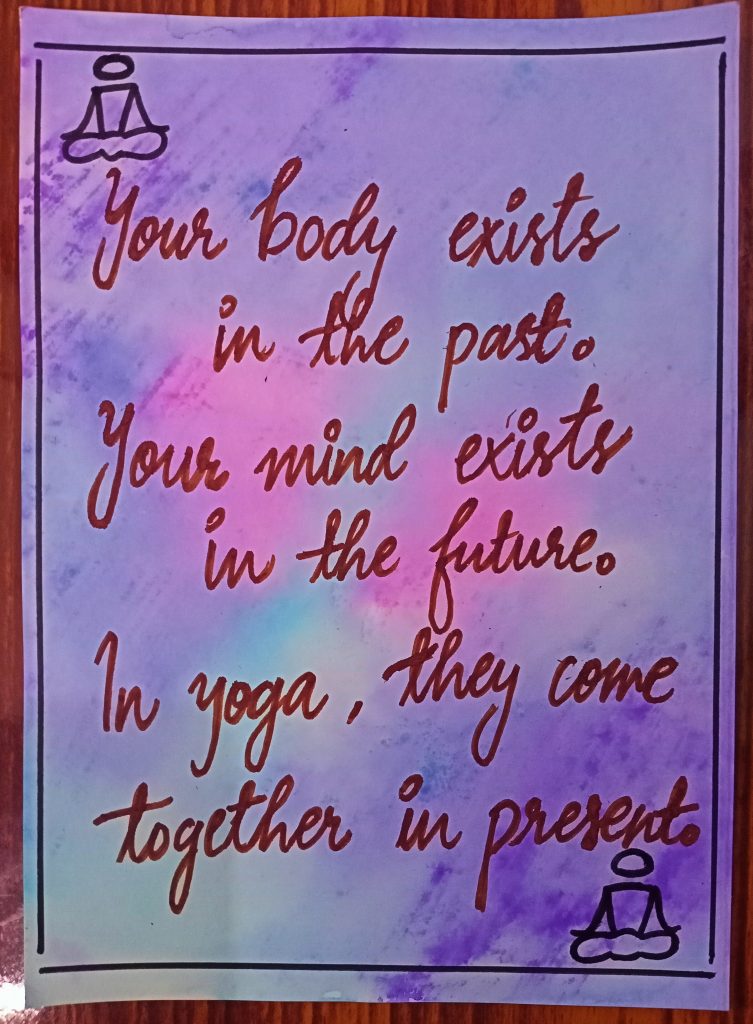 Your body exists
in the past.
Your mind exists
in the future.
In yoga, they come
together in present.